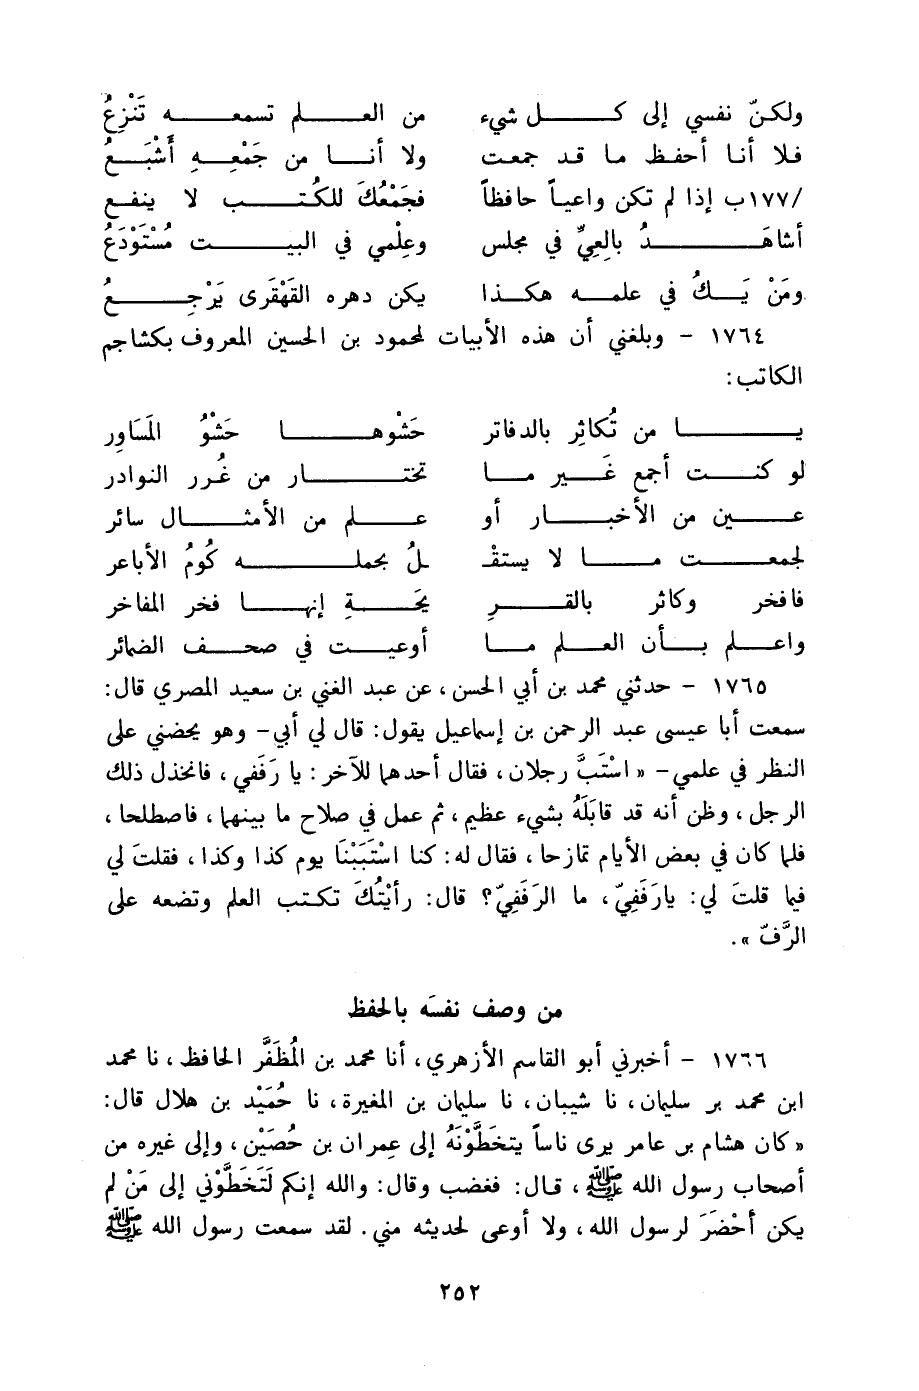 ولكنّ نفسي إلى كل شيء من العلم تسمعه تَنْزِعُ
فلا أنا أحفظ ما قد جمعت ولا أنا من جَمْعِهِ أَشْبَعُ
/١٧٧ب إذا لم تكن واعياً حافظاً فجَمْعُكَ للكُتب لا ينفع
أشاهَدُ بالعِيِّ في مجلس وعِلْمي في البيت مُسْتَوْدَعُ
ومَنْ يَكُ في علمه هكذا يكن دهره القَهْقَرى يَرْجِعُ
١٧٦٤ - وبلغني أن هذه الأبيات لمحمود بن الحسين المعروف بكشاجم
الكاتب:
يا من تُكاثِر بالدفاتر حَشْوها حَشْوُ المَسَاوِر
لو كنت أجمع غَير ما تختار من غُرر النوادر
عين من الأخبار أو علم من الأمثال سائر
لجمعت ما لا يستقْلُ بحمله كُومُ الأباعر
فافخر وكاثر بالقرِيحَةِ إنها فخر المفاخر
واعلم بأن العلم ما أوعيت في صحف الضمائر
١٧٦٥ - حدثني محمد بن أبي الحسن، عن عبد الغني بن سعيد المصري قال:
سمعت أبا عيسى عبد الرحمن بن إسماعيل يقول: قال لي أبي- وهو يحضني على
النظر في علمي- « اسْتَبَّ رجلان، فقال أحدهما للآخر: يا رَفَفي، فانخذل ذلك
الرجل، وظن أنه قد قابَلَهُ بشيء عظيم، ثم عمل في صلاح ما بينهما، فاصطلحا،
فلما كان في بعض الأيام تمازحا، فقال له: كنا اسْتَبَبْنَا يوم كذا وكذا، فقلتَ لي
فيما قلتَ لي: يارَفَفِيّ، ما الرَفَفِيّ؟ قال: رأيْتُكَ تكتب العلم وتضعه على
الرَّفّ ».
من وصف نفسَه بالحفظ
١٧٦٦ - أخبرني أبو القاسم الأزهري، أنا محمد بن المُظَفَّر الحافظ، نا محمد
ابن محمد بر سليمان، نا شيبان، نا سليمان بن المغيرة، نا حُمَيْد بن هلال قال:
« كان هشام بر عامر يرى ناساً يتخَطَّوْنَهُ إلى عِمران بن حُصَيْن، وإلى غيره من
أصحاب رسول الله ﷺ، قال: فغضب وقال: والله إنكم لَتَخَطَّوْني إلى مَنْ لم
يكن أحْضَرَ لرسول الله، ولا أوعى لحديثه مني. لقد سمعت رسول الله ﷺ
٢٥٢